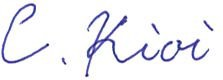 C. Kioi